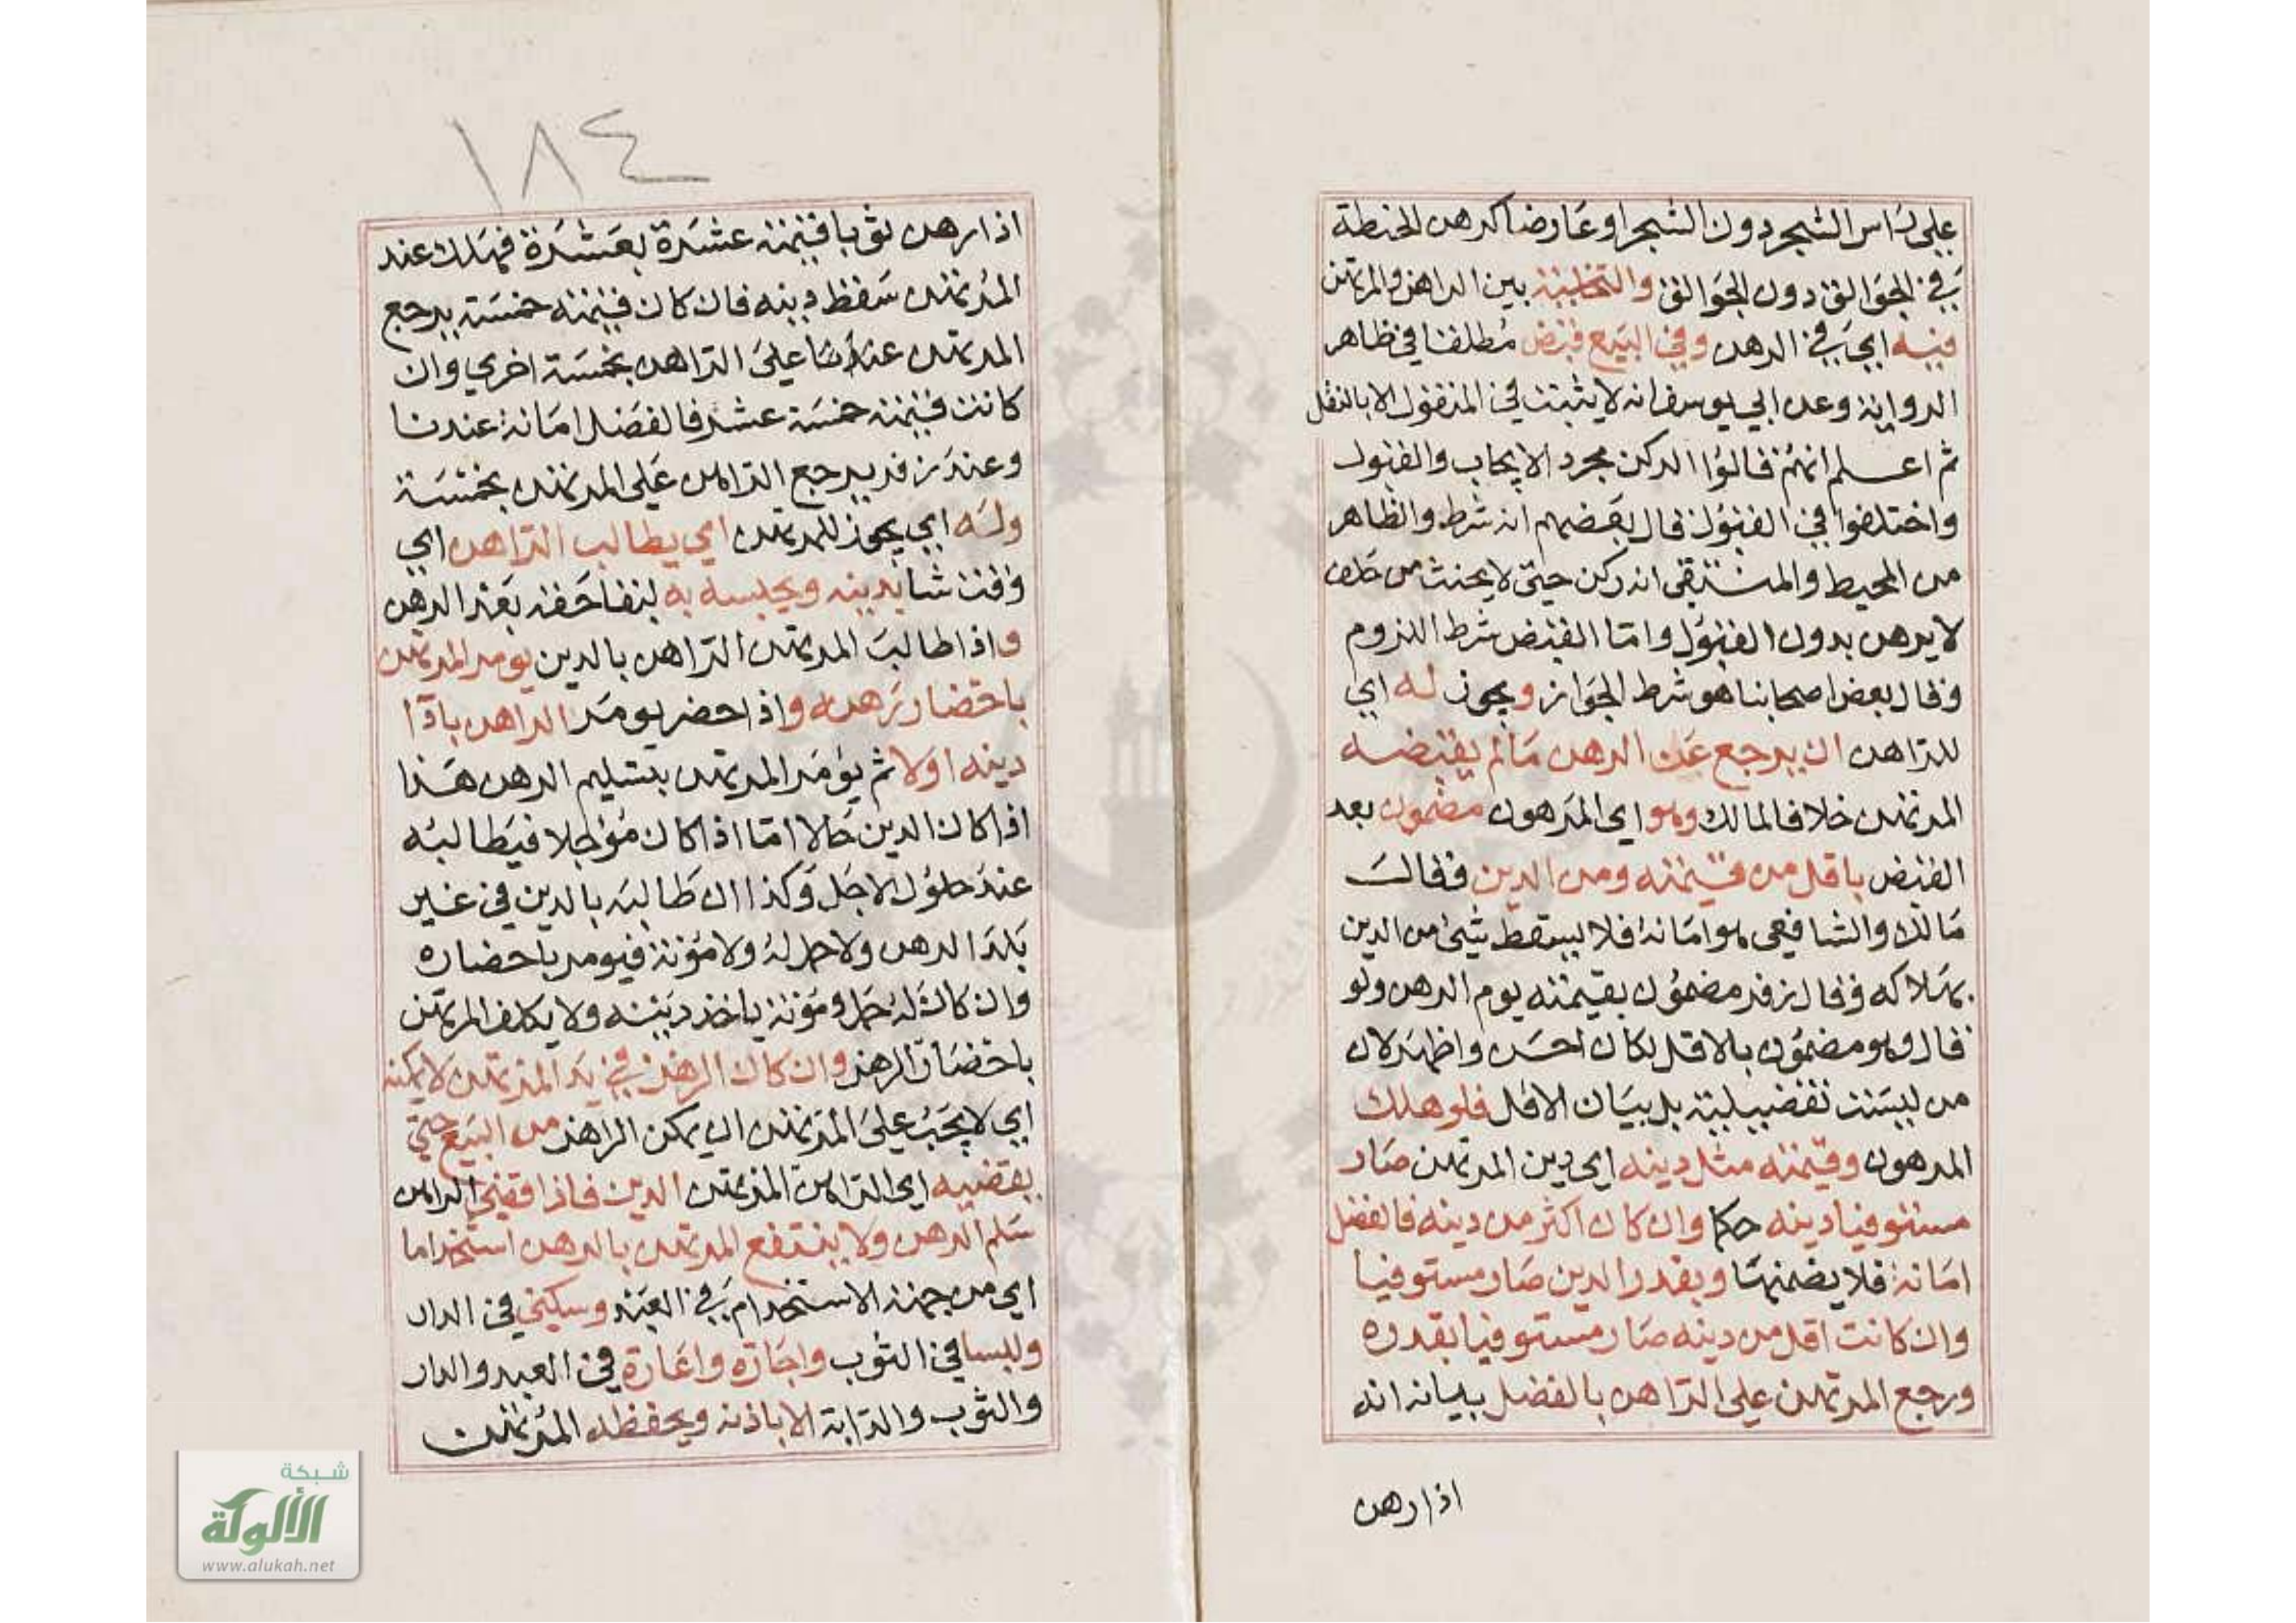 على راس الشجر دون الشجر او عارضا كرهن الحنطة
في الجوالق دون الجوالق والتخلية بين الراهن والمرتهن
فيه اي في الرهن وفي البيع قبض مطلقا في ظاهر
الرواية وعن ابي يوسف انه لا يثبت في المنقول الا بالنقل
ثم اعلم انهم قالوا الركن مجرد الايجاب والقبول
واختلفوا في القبول فقال بعضهم انه شرط والظاهر
من المحيط والمستقى انه ركن حتى لا يحنث من حلف
لا يرهن بدون القبول واما القبض شرط اللزوم
وقال بعض اصحابنا هو شرط الجواز ويجوز له اي
للراهن ان يرجع عن الرهن مالم يقبضه
المرتهن خلافا لمالك وهو اي المرهون مضمون بعد
القبض باقل من قيمته ومن الدين وقالت
مالك والشافعي هو امانة فلا يسقط شئ من الدين
بهلاكه وقال زفر مضمون بقيمته يوم الرهن ولو
قال وهو مضمون بالاقل لكان احسن واظهر لان
من ليست تفضيلية بل بيان الاقل فلو هلك
المرهون وقيمته مثل دينه اي دين المرتهن صار
مستوفيا دينه حكما وان كان اكثر من دينه فالفضل
امانة فلا يضمنها وبقدر الدين صار مستوفيا
وان كانت اقل من دينه صار مستوفيا بقدره
ورجع المرتهن على الراهن بالفضل بيانه انه
اذا رهن
١٨٤
اذا رهن ثوبا قيمته عشرة بعشرة فهلك عند
المرتهن سقط دينه فان كان قيمته خمسة يرجع
المرتهن عندنا على الراهن بخمسة اخري وان
كانت قيمته خمسة عشر فالفضل امانة عندنا
وعند زفر يرجع الراهن على المرتهن بخمسة
وله اي يجوز للمرتهن اي يطالب الراهن اي
وقت شا بدينه ويحبسه به لبقا حقه بعد الرهن
واذا طالب المرتهن الراهن بالدين يومر المرتهن
باحضار رهنه واذا حضر يومر الراهن بادآ
دينه اولا ثم يؤمر المرتهن بتسليم الرهن هذا
اذا كان الدين حالا اما اذا كان مؤجلا فيطالبه
عند حلول الاجل وكذا ان طالبه بالدين في غير
بلد الرهن ولا حمل له ولا مؤنة فيومر باحضاره
وان كان له حمل ومؤنة ياخذ دينه ولا يكلف المرتهن
باحضار الرهن وان كان الرهن في يد المرتهن لا يمكنه
اي لا يجب على المرتهن ان يمكن الراهن من البيع حتي
يقضيه اي الراهن المرتهن الدين فاذا قضي الراهن
سلم الرهن ولا ينتفع المرتهن بالرهن استخداما
اي من جهة الاستخدام في العبد وسكني في الدار
ولبسا في الثوب واجارة واعارة في العبد والدار
والثوب والدابة الا باذنه ويحفظه المرتهن
شبكة
الألوكة
www.alukah.net